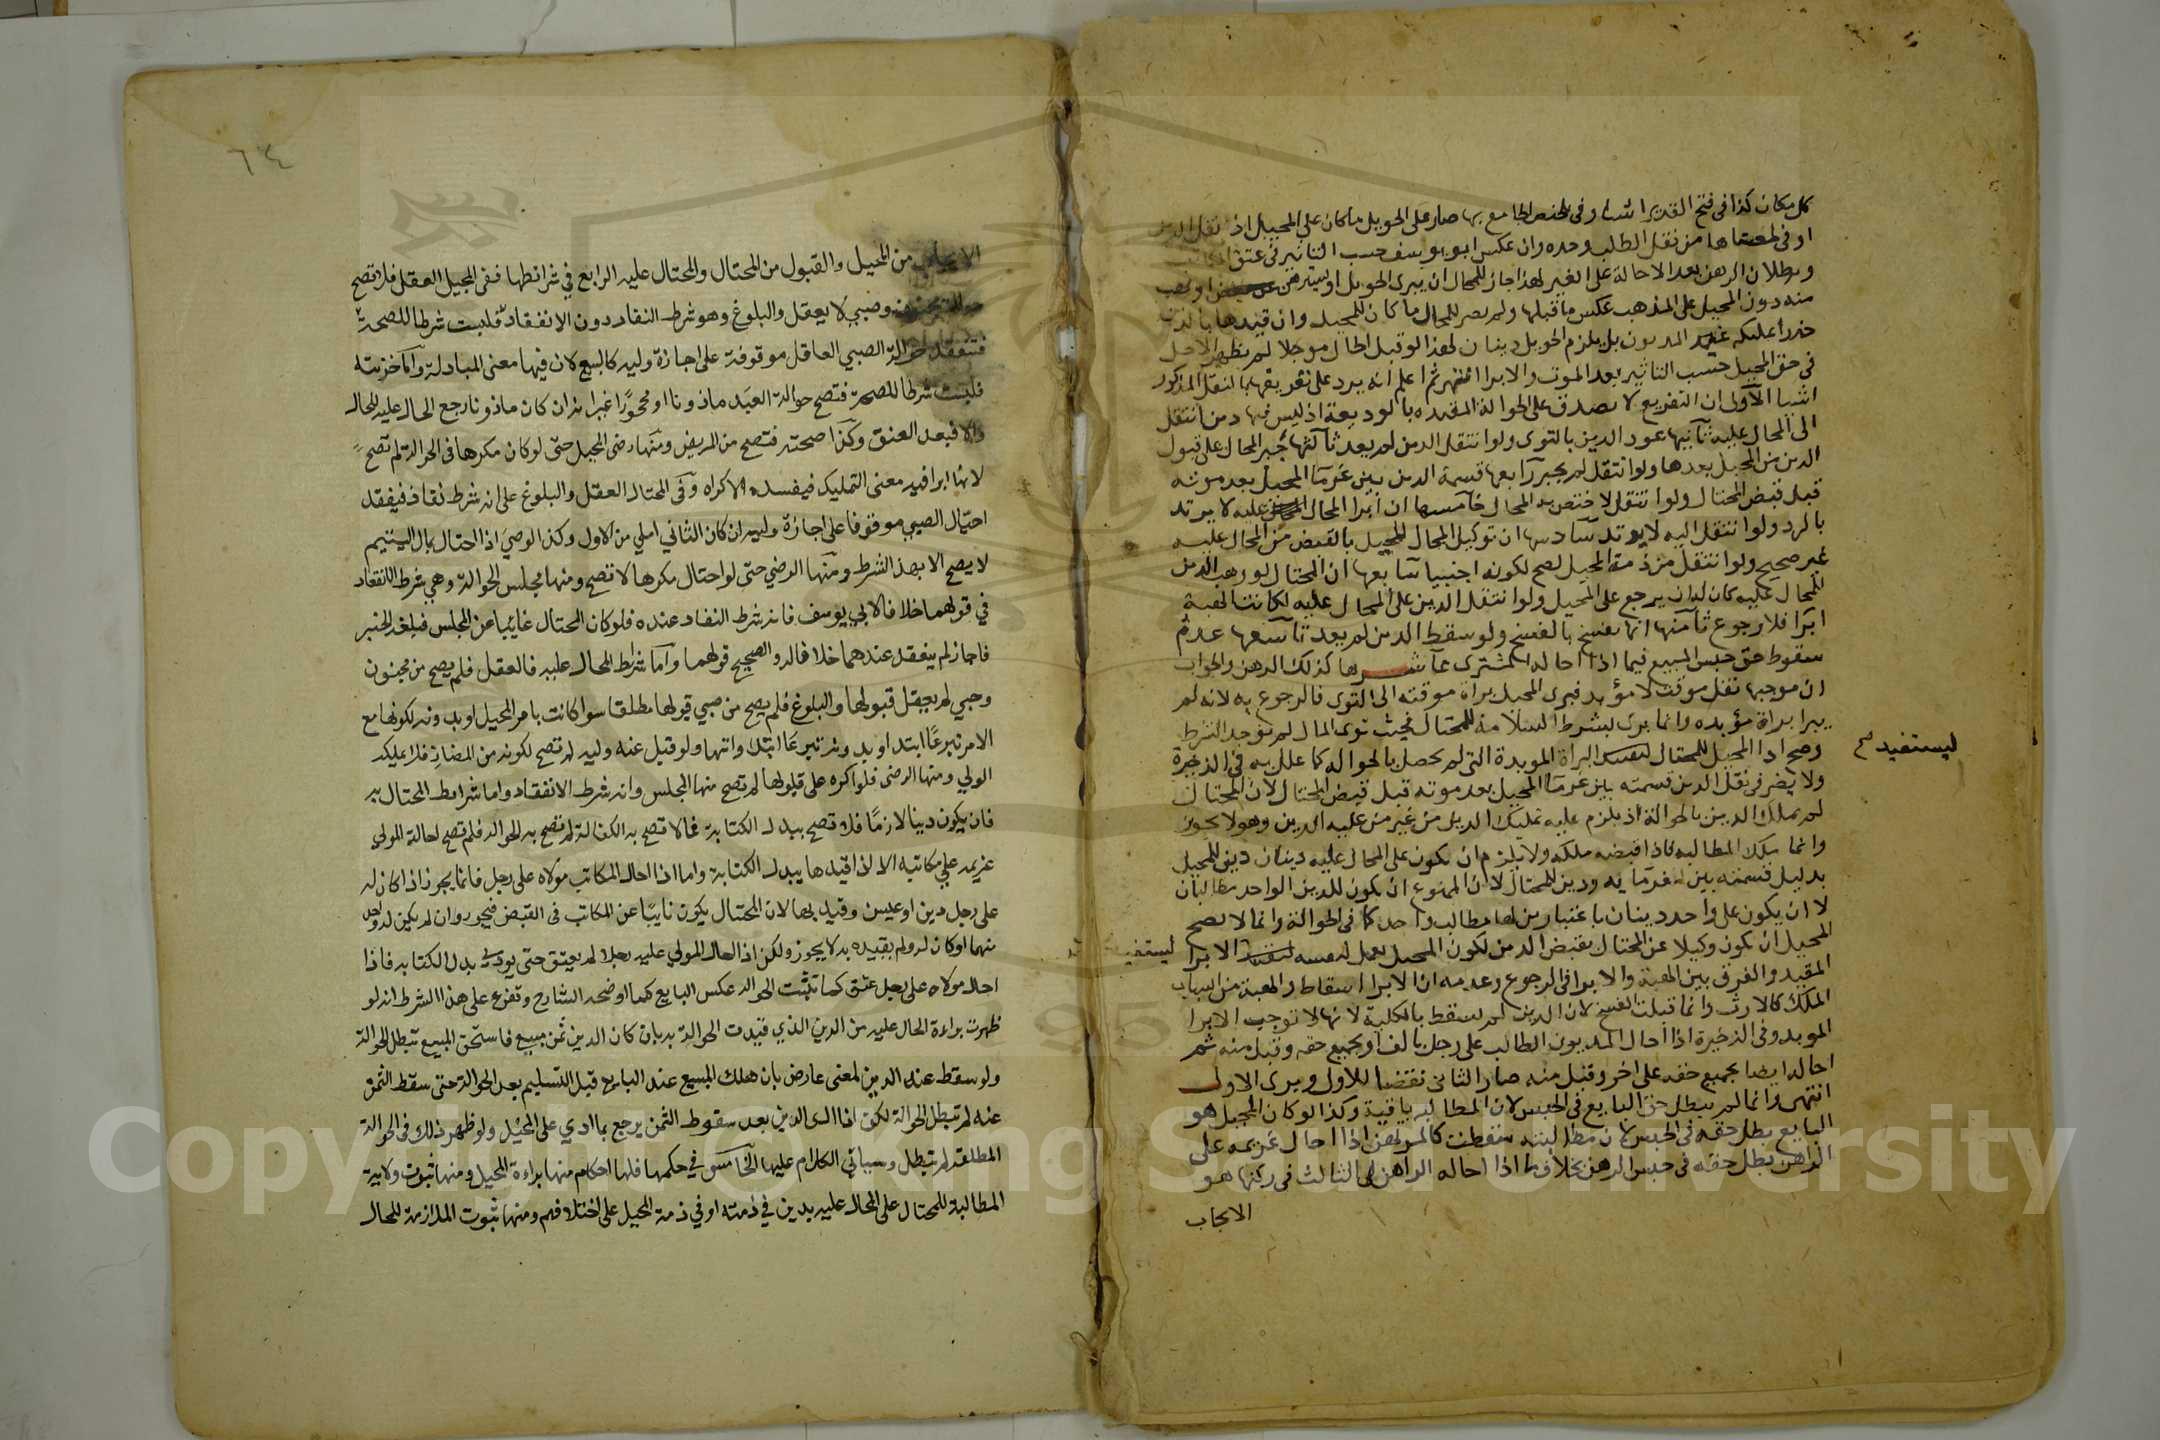 كل مكان كذا فى فتح القدير اشار وفى تلخيص الجامع بها صار على الحويل ما كان على المحيل اذ نقل الدين
او فى معناها من نقل الطلب وحده وان عكس ابو يوسف حسب التاثير فى عتق
وبطلان الرهن بعد الاحالة على الغير لهذا جاز للمحال ان يبرى الحويل او يسترهن او يهب
منه دون المحيل على المذهب عكس ما قبلها ولم يصر للمحال ما كان للمحيل وان قيدها بالدين
حذرا عليكه غير المديون بل يلزم الحويل دينان لهذا لو قبل الحال موجلا لم يظهر الاجل
فى حق المحيل حسب التاثير بعد الموت والابرا ثم اعلم انه يرد على تفريقهما لنقل المذكور
اشيا الاولى ان التفريع لا يصدق على الحوالة المقيدة بالوديعة اذ ليس فيها دين انتقل
الى المحال عليه ثانيها عود الدين بالتوى ولو انتقل الدين لم يعد ثالثها جبر المحال على قبول
الدين من المحيل بعدها ولو انتقل لم يجبر رابعها قسمة الدين بين غرما المحيل بعد موته
قبل قبض المحتال ولو انتقل لاختص به المحال خامسها ان ابرا المحال عليه لا يرتد
بالرد ولو انتقل اليه لا يرتد سادسها ان توكيل المحال للمحيل بالقبض من المحال عليه
غير صحيح ولو انتقل من ذمة المحيل لصح لكونه اجنبيا سابعها ان المحتال لو وهب الدين
للمحال عليه كان له ان يرجع على المحيل ولو انتقل الدين على المحال عليه لكانت الهبة
ابرا فلا رجوع ثامنها انها تفسخ بالفسخ ولو سقط الدين لم يعد تاسعها عدم
سقوط حق حبس المبيع فيما اذا احاله المشترى عاشرها كذلك الرهن والجواب
ان موجبها نقل موقت لا مؤبد فبرى المحيل براة موقته الى التوى فالرجوع به لانه لم
يبرا براة مؤبده وانما برى بشرط السلامة للمحتال فحيث توى المال لم توجد الشرط
وصح ادا المحيل للمحتال ليستفيد البراة الموبدة التى لم تحصل بالحواله كما علل به فى الذخيرة
ليستفيد صح
ولا يضر فى نقل الدين قسمته بين غرما المحيل بعد موته قبل قبض المحتال لان المحتال
لم يملك الدين بالحوالة اذ يلزم عليه تمليك الدين من غير من عليه الدين وهو لا يجوز
وانما يملك المطالبه فاذا قبضه ملكه ولا يلزم ان يكون على المحال عليه دينان دين للمحيل
بدليل قسمته بين غرمايه ودين للمحتال لان الممنوع ان يكون للدين الواحد مطالبان
لا ان يكون على واحد دينان باعتبارين لهما مطالب واحد كما فى الحوالة وانما لا يصح
للمحيل ان يكون وكيلا عن المحتال بقبض الدين لكون المحيل يعمل لنفسه ليستفيد الابرا
ليستفيد
المقيد والفرق بين الهبة والابرا فى الرجوع وعدمه ان الابرا اسقاط والهبة من اسباب
الملك كالارث وانما قبلت الفسخ لان الدين لم يسقط بالكلية لانها لا توجب الابرا
الموبد وفى الذخيرة اذا احال المديون الطالب على رجل بالف او بجميع حقه وقبل منه ثم
احاله ايضا بجميع حقه على اخر وقبل منه صار الثانى نقضا للاول وبرى الاول
انتهى وانما لم يبطل حق البايع فى الحبس لان المطالبه باقية وكذا لو كان المحيل هو
البايع بطل حقه فى الحبس لان مطالبته سقطت كالمرتهن اذا احال غريمه على
الراهن بطل حقه فى حبس الرهن بخلاف ما اذا احاله الراهن الثالث فى ركنها هو
الايجاب
٦٤
الايجاب من المحيل والقبول من المحتال والمحتال عليه الرابع في شرائطها ففى المحيل العقل فلا تصح
حوالة مجنون وصبي لا يعقل والبلوغ وهو شرط النفاد دون الانفقاد فليست شرطا للصحة
فتنعقد حوالة الصبي العاقل موقوفة على اجازة وليه كالبيع لان فيها معنى المبادلة واما حريته
فليست شرطا للصحة فتصح حوالة العبد ماذونا او محجورا غير انه ان كان ماذونا رجع المحال عليه للحال
والا فبعد العتق وكذا صحته فتصح من المريض ومنها رضى المحيل حتى لو كان مكرها فى الحوالة لم تصح
لانها ابرا فيه معنى التمليك فيفسده الاكراه وفى المحتال العقل والبلوغ على انه شرط نفاذ فينفقد
احتيال الصبي موقوفا على اجازة وليه ان كان الثاني املي من الاول وكذا الوصي اذا احتال بمال اليتيم
لا يصح الا بهذا الشرط ومنها الرضي حتى لو احتال مكرها لا تصح ومنها مجلس الحوالة وهي شرط الانفقاد
في قولهما خلافا لابي يوسف فانه شرط النفاد عنده فلو كان المحتال غائبا عن المجلس فبلغه الخبر
فاجاز لم ينفقد عندهما خلافا له والصحيح قولهما واما شرائط المحال عليه فالعقل فلم يصح من مجنون
وصبي لم يعقل قبولها والبلوغ فلم يصح من صبي قبولها مطلقا سوا كانت بامر المحيل او بدونه لكونها مع
الامر تبرعا ابتدا وبدونه تبرعا ابتدا وانتها ولو قبل عنه وليه لم تصح لكونه من المضار فلا يملكه
الولي ومنها الرضى فلو اكره على قبولها لم تصح منها المجلس وانه شرط الانفقاد واما شرائط المحتال به
فان يكون دينا لازما فلا تصح ببدل الكتابة فما لا تصح به الكفالة لم تصح به الحوالة فلم تصح احالة المولى
غريمه على مكاتبه الا اذا قيدها ببدل الكتابة واما اذا احال المكاتب مولاه على رجل فانما يجوز اذا كان له
على رجل دين او عين وقيد بها لان المحتال يكون نايبا عن المكاتب فى القبض فيجوز وان لم يكن له واحد
منهما او كان له ولم يقيده به لا يجوز ولكن اذا احال المولى عليه رجلا لم يعتق حتى يودى بدل الكتابه فاذا
احال مولاه على رجل عتق كما تثبت الحواله عكس البايع كما اوضحه الشارح وتفرع على هذا الشرط انه لو
ظهرت براءة المحال عليه من الدين الذي قيدت الحوالة به بان كان الدين ثمن مبيع فاستحق المبيع تبطل الحوالة
ولو سقط عنه الدين لمعنى عارض بان هلك المبيع عند البايع قبل التسليم بعد الحوالة حتى سقط الثمن
عنه لم تبطل الحوالة لكن اذا ادى الدين بعد سقوط الثمن يرجع بما ادي على المحيل ولو ظهر ذلك فى الحوالة
المطلقة لم تبطل وسياتي الكلام عليها الخامس في حكمها فلها احكام منها براءة المحيل ومنها ثبوت ولاية
المطالبة للمحتال على المحال عليه بدين في ذمته او في ذمة المحيل على اختلافهم ومنها ثبوت الملازمة للمحال
Copyright © King Saud University